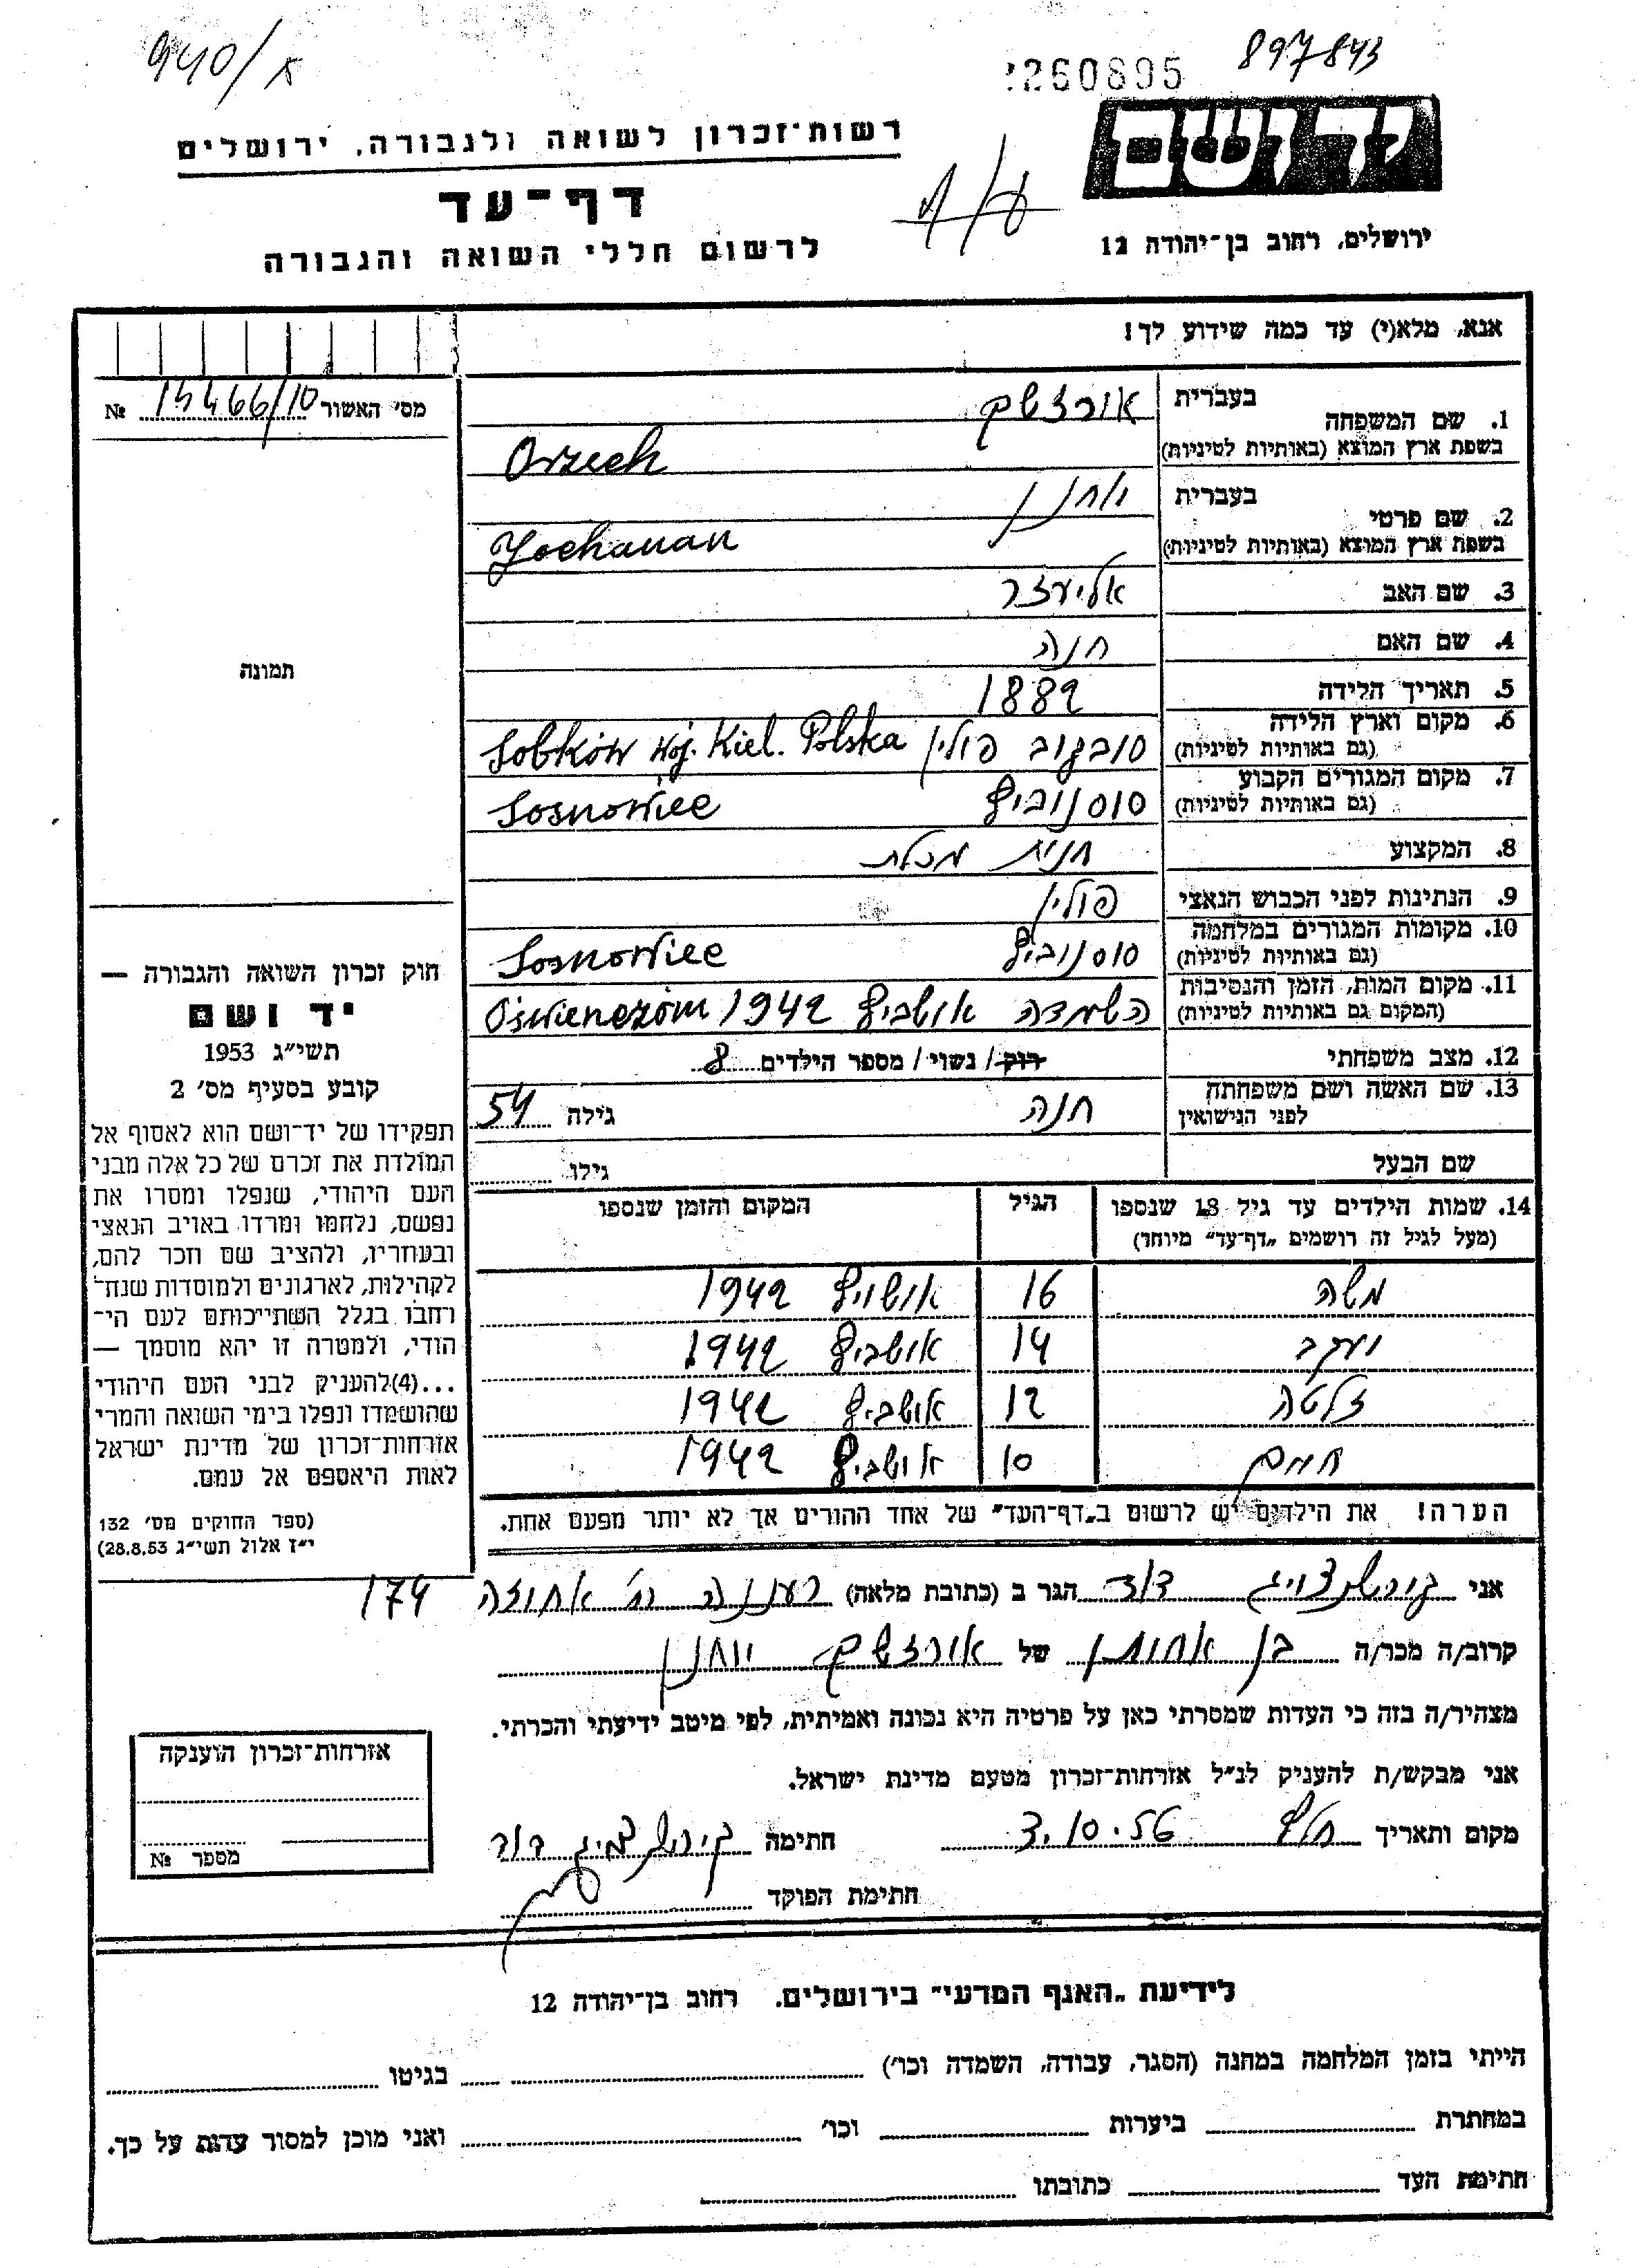 940/א
2260895
897843
יד ושם
ירושלים, רחוב בן־יהודה 12
רשות־זכרון לשואה ולגבורה, ירושלים
דף־עד
לרשום חללי השואה והגבורה
אנא, מלא(י) עד כמה שידוע לך!
מס׳ האשור 15466/10 №
1. שם המשפחה
בעברית אורזשק
בשפת ארץ המוצא (באותיות לטיניות) Orzech
2. שם פרטי
בעברית יוחנן
בשפת ארץ המוצא (באותיות לטיניות) Yochanan
3. שם האב אליעזר
4. שם האם חנה
5. תאריך הלידה 1882
6. מקום וארץ הלידה
(גם באותיות לטיניות) סובקוב פולין Sobków woj. Kiel. Polska
7. מקום המגורים הקבוע
(גם באותיות לטיניות) סוסנוביץ Sosnowiec
8. המקצוע חנות מכלת
9. הנתינות לפני הכבוש הנאצי פולין
10. מקומות המגורים במלחמה
(גם באותיות לטיניות) סוסנוביץ Sosnowiec
11. מקום המות, הזמן והנסיבות
(המקום גם באותיות לטיניות) השמדה אושביץ 1942 Oswienczim
12. מצב משפחתי רוק / נשוי / מספר הילדים 8
13. שם האשה ושם משפחתה
לפני הנישואין חנה גילה 54
שם הבעל גילו
14. שמות הילדים עד גיל 18 שנספו הגיל המקום והזמן שנספו
(מעל לגיל זה רושמים „דף־עד״ מיוחד)
משה 16 אושויץ 1942
יעקב 14 אושביץ 1942
זלטה 12 אושביץ 1942
חיים 10 אושביץ 1942
הערה! את הילדים יש לרשום ב„דף־העד״ של אחד ההורים אך לא יותר מפעם אחת.
תמונה
חוק זכרון השואה והגבורה —
יד ושם
תשי״ג 1953
קובע בסעיף מס׳ 2
תפקידו של יד־ושם הוא לאסוף אל
המולדת את זכרם של כל אלה מבני
העם היהודי, שנפלו ומסרו את
נפשם, נלחמו ומרדו באויב הנאצי
ובעוזריו, ולהציב שם וזכר להם,
לקהילות, לארגונים ולמוסדות שנח־
רחבו בגלל השתייכותם לעם הי־
הודי, ולמטרה זו יהא מוסמך —
...(4)להעניק לבני העם היהודי
שהושמדו ונפלו בימי השואה והמרי
אזרחות־זכרון של מדינת ישראל
לאות היאספם אל עמם.
(ספר החוקים מס׳ 132
י״ז אלול תשי״ג 28.8.53)
אני דוד הגר ב (כתובת מלאה) רעננה רח׳ אחוזה 174
קרוב/ה מכר/ה בן אחות של אורזשק יוחנן
מצהיר/ה בזה כי העדות שמסרתי כאן על פרטיה היא נכונה ואמיתית, לפי מיטב ידיעתי והכרתי.
אני מבקש/ת להעניק לנ״ל אזרחות־זכרון מטעם מדינת ישראל.
מקום ותאריך 3.10.56 חתימה דוד
חתימת הפוקד
אזרחות־זכרון הוענקה
מספר №
לידיעת „האגף המדעי״ בירושלים. רחוב בן־יהודה 12
הייתי בזמן המלחמה במחנה (הסגר, עבודה, השמדה וכו׳) בגיטו
במחתרת ביערות וכו׳ ואני מוכן למסור עדות על כך.
חתימת העד כתובתו